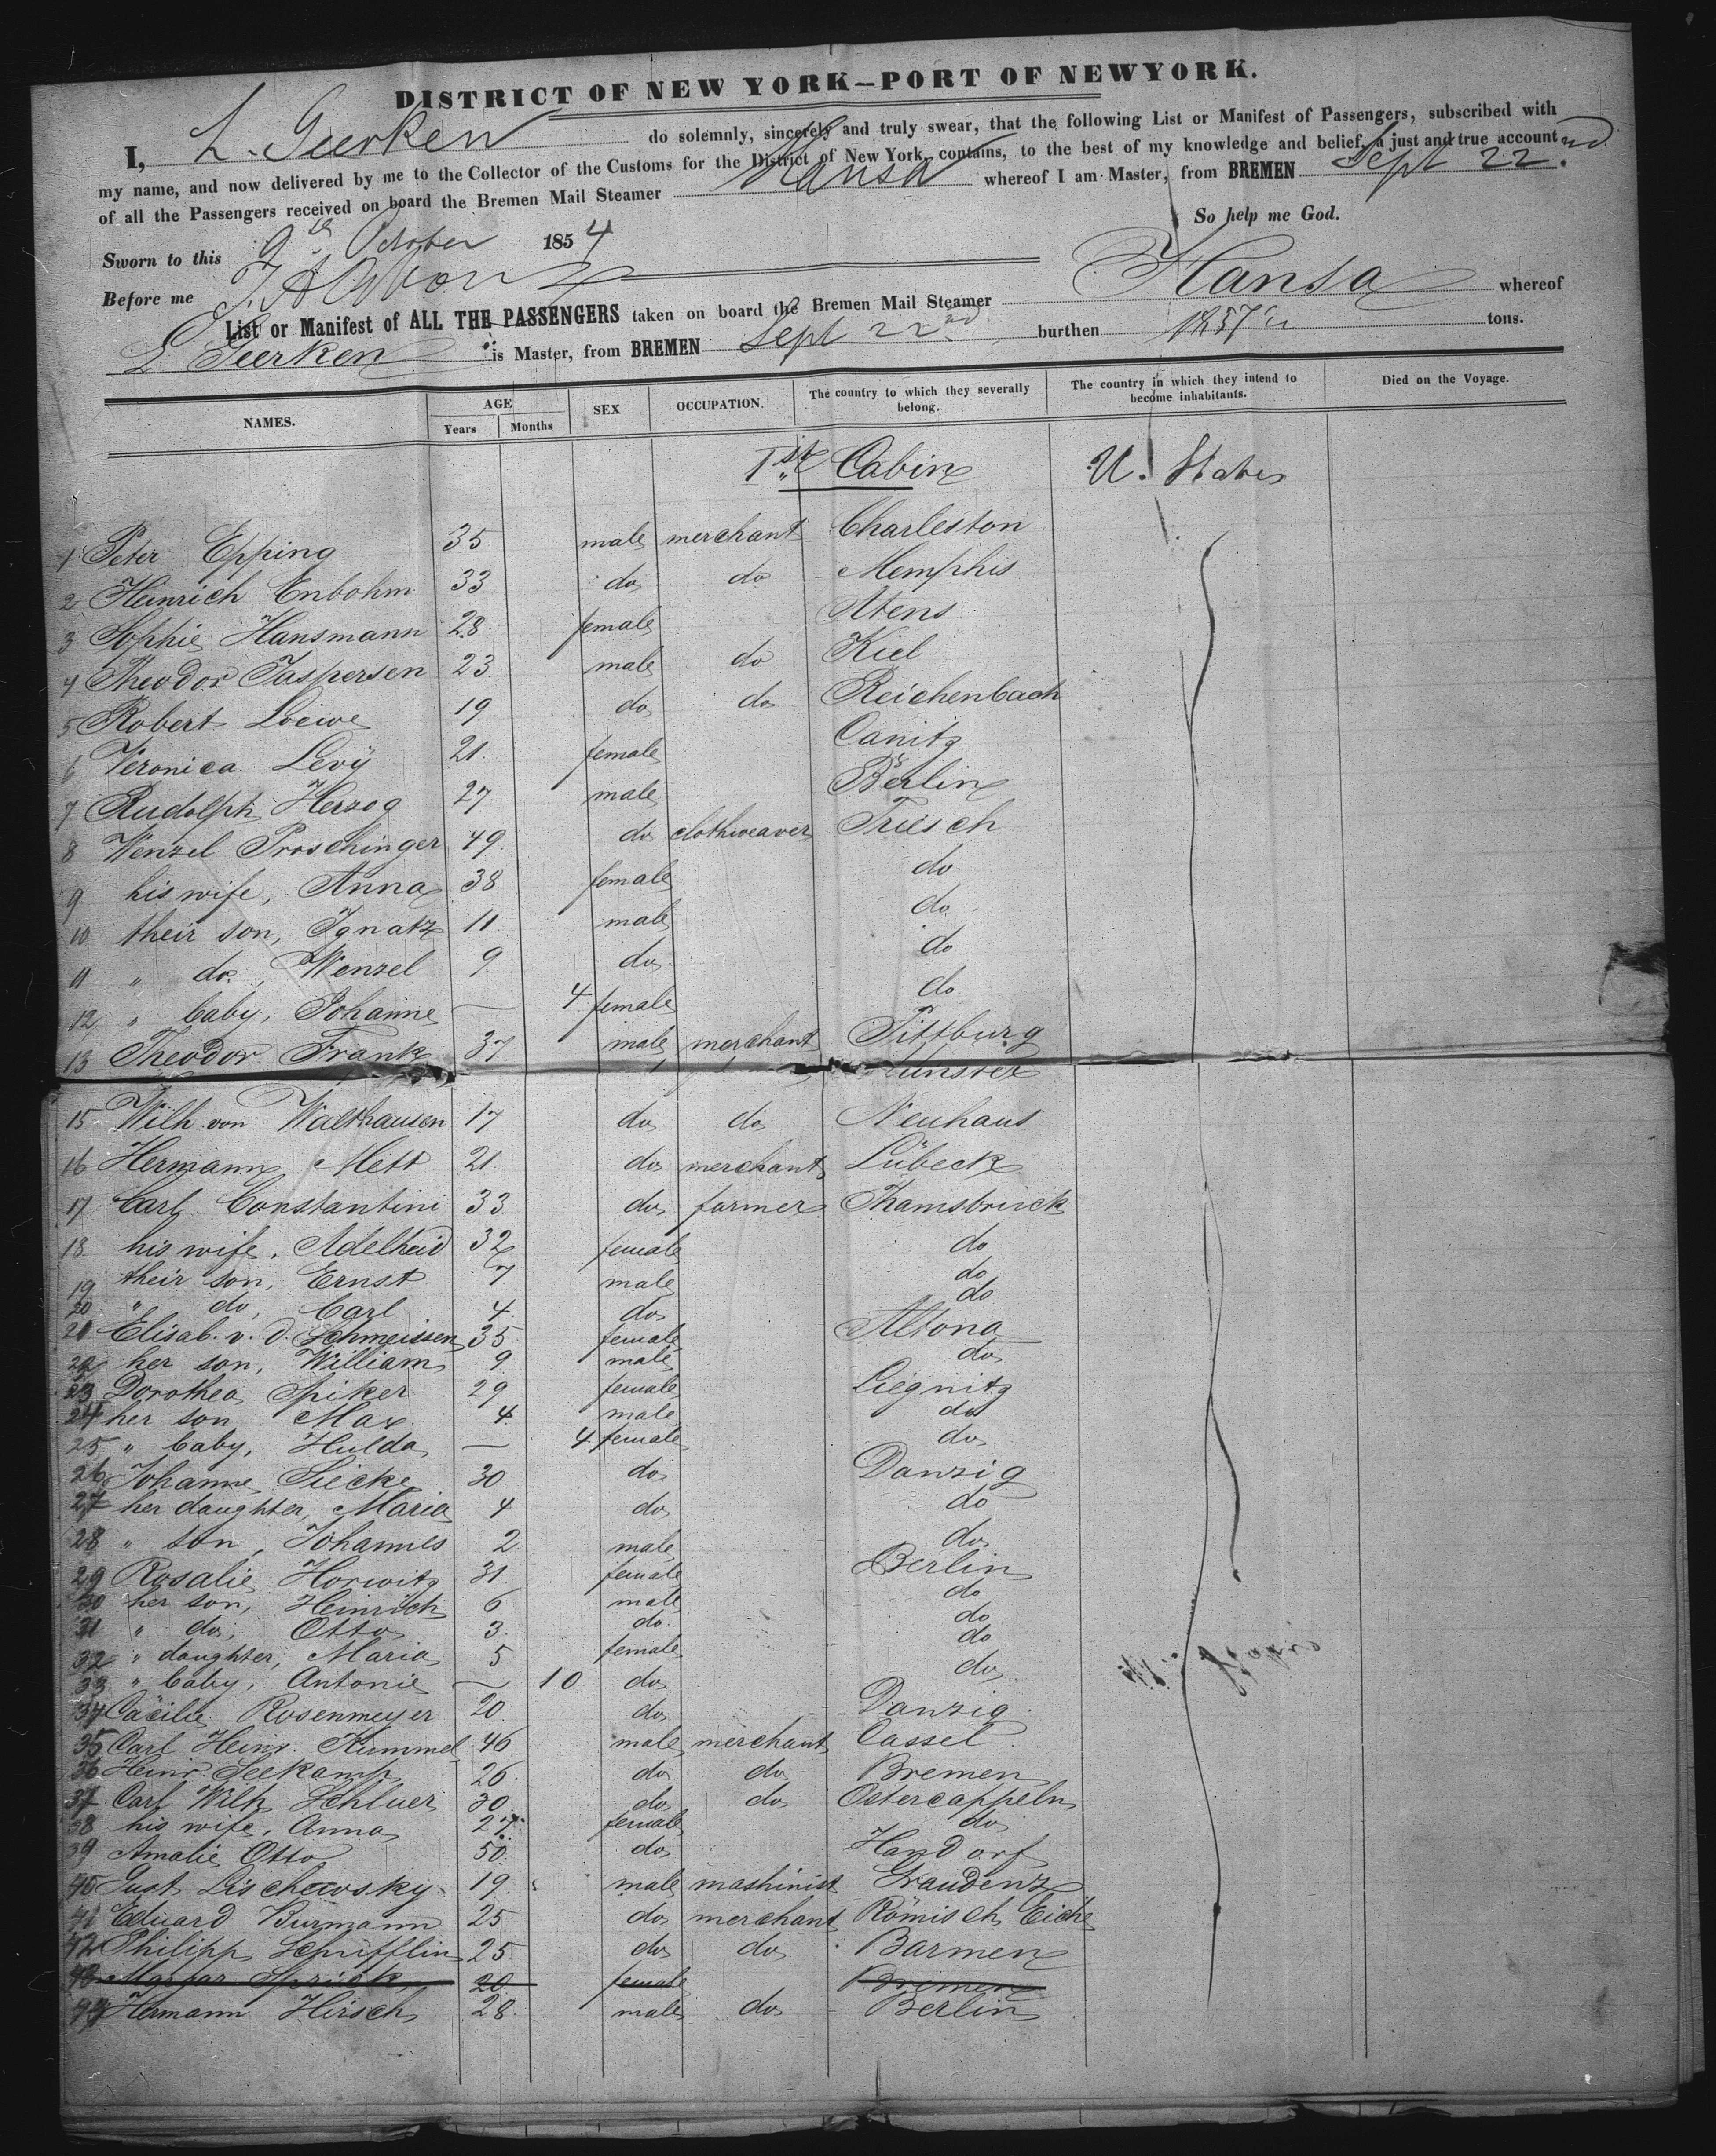 DISTRICT OF NEW YORK—PORT OF NEWYORK.
I, L. Geerken do solemnly, sincerely and truly swear, that the following List or Manifest of Passengers, subscribed with
my name, and now delivered by me to the Collector of the Customs for the District of New York, contains, to the best of my knowledge and belief, a just and true account
of all the Passengers received on board the Bremen Mail Steamer Hansa whereof I am Master, from BREMEN Sept 22nd.
So help me God.
Sworn to this 9th October 1854
Before me
List or Manifest of ALL THE PASSENGERS taken on board the Bremen Mail Steamer Hansa whereof
L Geerken is Master, from BREMEN Sept 22nd burthen tons.
NAMES. AGE Years Months SEX OCCUPATION. The country to which they severally belong. The country in which they intend to become inhabitants. Died on the Voyage.
1st Cabin U. States
1 Peter Epping 35 male merchant Charleston
2 Heinrich Enbohm 33 do do Memphis
3 Sophie Hansmann 28 female Atens
4 Theodor Jaspersen 23 male do Kiel
5 Robert Loewe 19 do do Reichenbach
6 Veronica Levÿ 21 female Canitz
7 Rudolph Herzog 27 male Berlin
8 Wenzel Proschinger 49 do clothweaver Triesch
9 his wife, Anna 38 female do
10 their son, Ignatz 11 male do
11 " do, Wenzel 9 do do
12 " baby, Johanne — 4 female do
13 Theodor Frank 37 male merchant Pittburg
Münster
15 Wilh. von Walthausen 17 do do Neuhaus
16 Hermann Mett 21 do merchant Lübeck
17 Carl Constantini 33 do farmer Thamsbruck
18 his wife, Adelheid 32 female do
19 their son, Ernst 7 male do
20 " do, Carl 4 do do
21 Elisab. v. d. Schmeissen 35 female Altona
22 her son, William 9 male do
23 Dorothea Spiker 29 female Liegnitz
24 her son Max 4 male do
25 " baby, Hulda — 4 female do
26 Johanne Siecke 30 do Danzig
27 her daughter, Maria 4 do do
28 " son, Johannes 2 male do
29 Rosalie Horwitz 31 female Berlin
30 her son, Heinrich 6 male do
31 " do, Otto 3 do do
32 " daughter, Maria 5 female do
33 " baby, Antonie — 10 do do
34 Cäcilie Rosenmeyer 20 do Danzig
35 Carl Heinr. Kummel 46 male merchant Cassel
36 Heinr Seekamp 26 do do Bremen
37 Carl Wilh Schluer 30 do do Ostercappeln
38 his wife, Anna 27 female do
39 Amalie Otto 50 do Handorf
40 Gust Lischewsky 19 male mashinist Graudenz
41 Eduard Burmann 25 do merchant Römisch Eiche
42 Philipp Schifflin 25 do do Barmen
43 Margar Sprick 20 female Bremen
44 Hermann Hirsch 28 male do Berlin